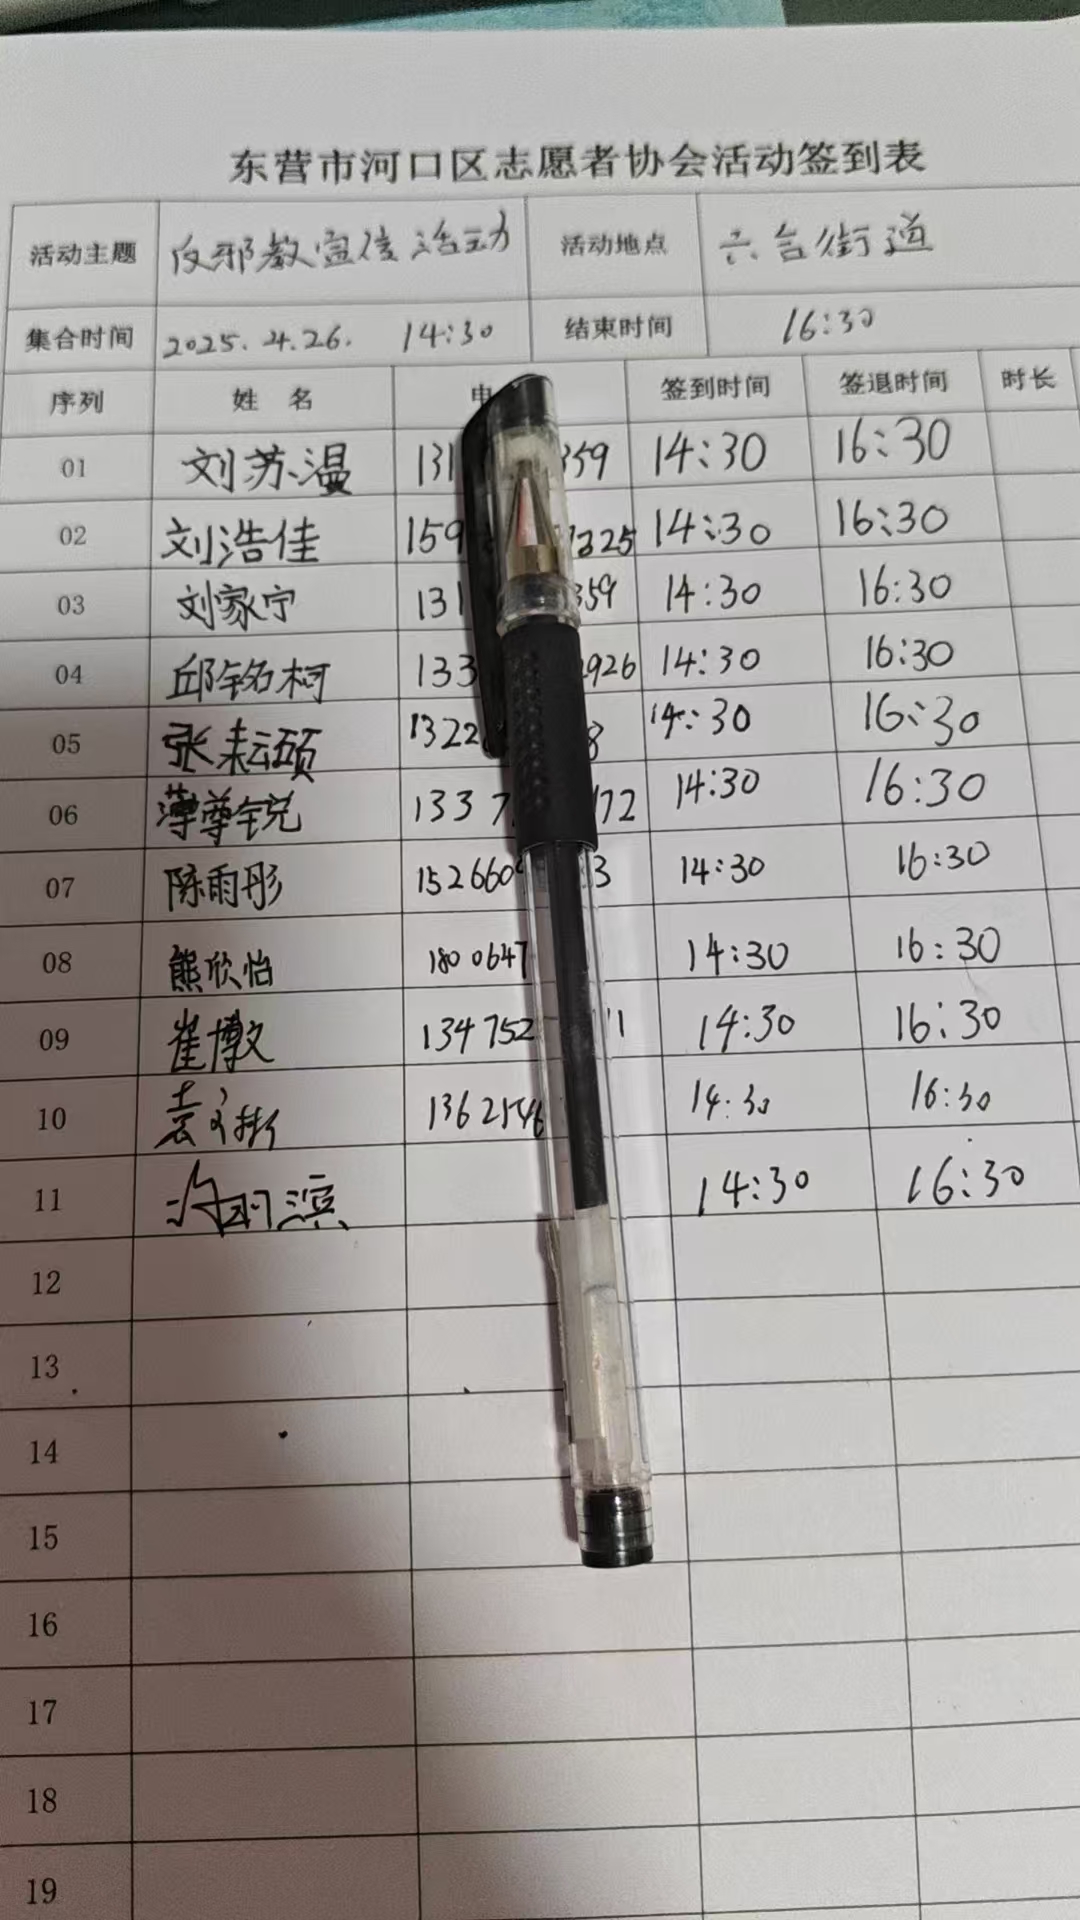 东营市河口区志愿者协会活动签到表
活动主题 反邪教宣传活动 活动地点 六合街道
集合时间 2025.4.26. 14:30 结束时间 16:30
序列 姓 名 电 签到时间 签退时间 时长
01 刘苏温 131 359 14:30 16:30
02 刘浩佳 159 1325 14:30 16:30
03 刘家宁 131 359 14:30 16:30
04 邱铭柯 133 2926 14:30 16:30
05 张耘硕 1322 8 14:30 16:30
06 薄尊锐 1337 172 14:30 16:30
07 陈雨彤 152660 3 14:30 16:30
08 熊欣怡 1800647 14:30 16:30
09 崔博文 134752 11 14:30 16:30
10 袁文彬 1362546 14:30 16:30
11 14:30 16:30
12
13
14
15
16
17
18
19